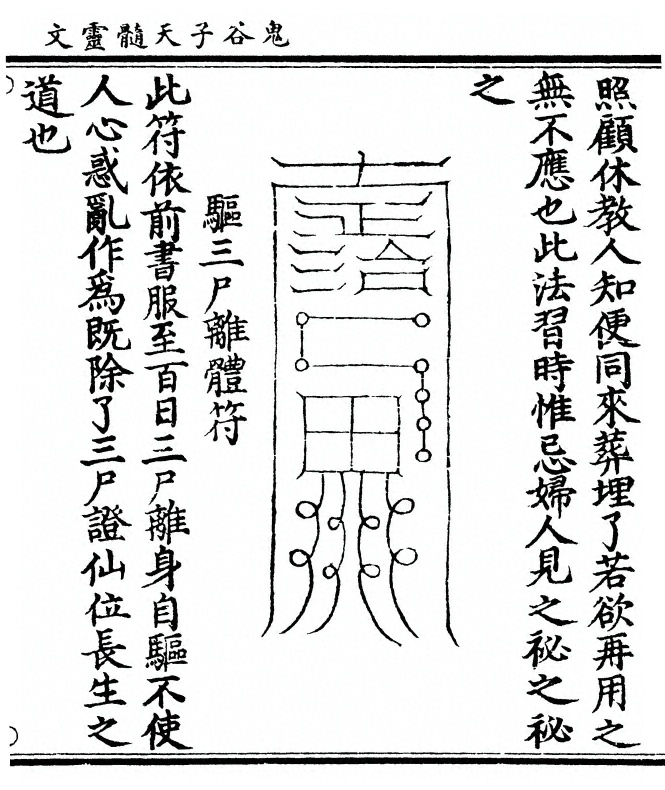 鬼谷子天髓靈文
照顧休教人知便同來葬埋了若欲再用之
無不應也此法習時惟忌婦人見之祕之祕
之
驅三尸離體符
此符依前書服至百日三尸離身自驅不使
人心惑亂作爲既除了三尸證仙位長生之
道也